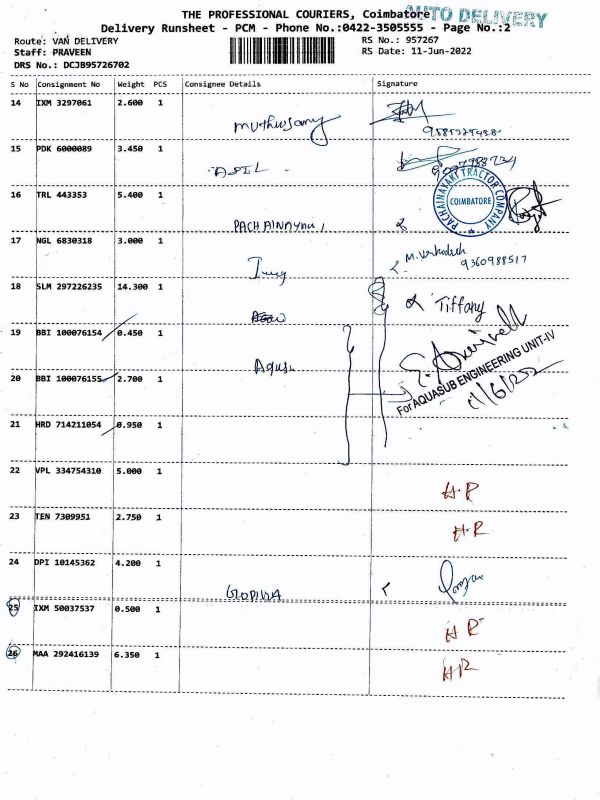 THE PROFESSIONAL COURIERS, Coimbatore
AUTO DELIVERY
Delivery Runsheet - PCM - Phone No.:0422-3505555 - Page No.:2
Route: VAN DELIVERY
RS No.: 957267
Staff: PRAVEEN
RS Date: 11-Jun-2022
DRS No.: DCJB95726702
S No Consignment No Weight PCS Consignee Details Signature
14 IXM 3297061 2.600 1
Muthusamy
15 PDK 6000089 3.450 1
16 TRL 443353 5.400 1
PACHAINAYAKI TRACTOR COMPANY
COIMBATORE
PACHAINAYAKI
17 NGL 6830318 3.000 1
M. Venkatesh
9360988517
18 SLM 297226235 14.300 1
Tiffany
19 BBI 100076154 0.450 1
Aqusu
20 BBI 100076155 2.700 1
For AQUASUB ENGINEERING UNIT-IV
11/6/22
21 HRD 714211054 0.950 1
22 VPL 334754310 5.000 1
H.R
23 TEN 7309951 2.750 1
H.R
24 DPI 10145362 4.200 1
25 IXM 50037537 0.500 1
H R
26 MAA 292416139 6.350 1
H R